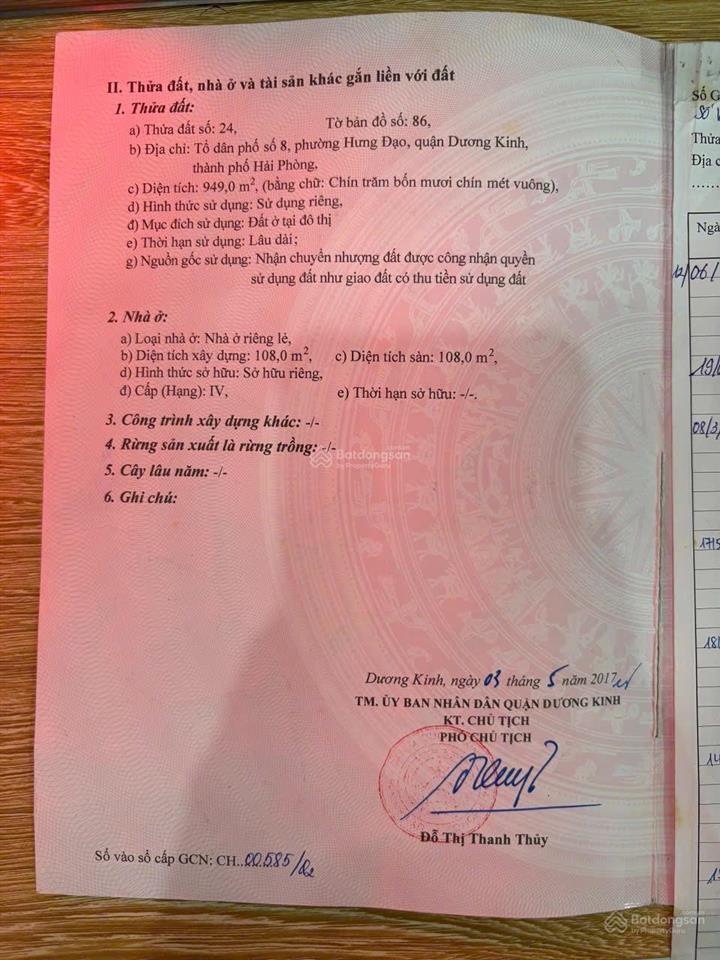 II. Thửa đất, nhà ở và tài sản khác gắn liền với đất
1. Thửa đất:
a) Thửa đất số: 24, Tờ bản đồ số: 86,
b) Địa chỉ: Tổ dân phố số 8, phường Hưng Đạo, quận Dương Kinh,
thành phố Hải Phòng,
c) Diện tích: 949,0 m², (bằng chữ: Chín trăm bốn mươi chín mét vuông),
d) Hình thức sử dụng: Sử dụng riêng,
đ) Mục đích sử dụng: Đất ở tại đô thị
e) Thời hạn sử dụng: Lâu dài;
g) Nguồn gốc sử dụng: Nhận chuyển nhượng đất được công nhận quyền
sử dụng đất như giao đất có thu tiền sử dụng đất
2. Nhà ở:
a) Loại nhà ở: Nhà ở riêng lẻ,
b) Diện tích xây dựng: 108,0 m², c) Diện tích sàn: 108,0 m²,
d) Hình thức sở hữu: Sở hữu riêng,
đ) Cấp (Hạng): IV, e) Thời hạn sở hữu: -/-.
3. Công trình xây dựng khác: -/-
4. Rừng sản xuất là rừng trồng: -/-
5. Cây lâu năm: -/-
6. Ghi chú:
Dương Kinh, ngày 03 tháng 5 năm 2017
TM. ỦY BAN NHÂN DÂN QUẬN DƯƠNG KINH
KT. CHỦ TỊCH
PHÓ CHỦ TỊCH
Đỗ Thị Thanh Thủy
Số vào sổ cấp GCN: CH..00585/
Batdongsan
by PropertyGuru
Batdongsan
by PropertyGuru
Số
Thửa
Địa
Ngà
12/06/
19/
08/3/
17/5
18/